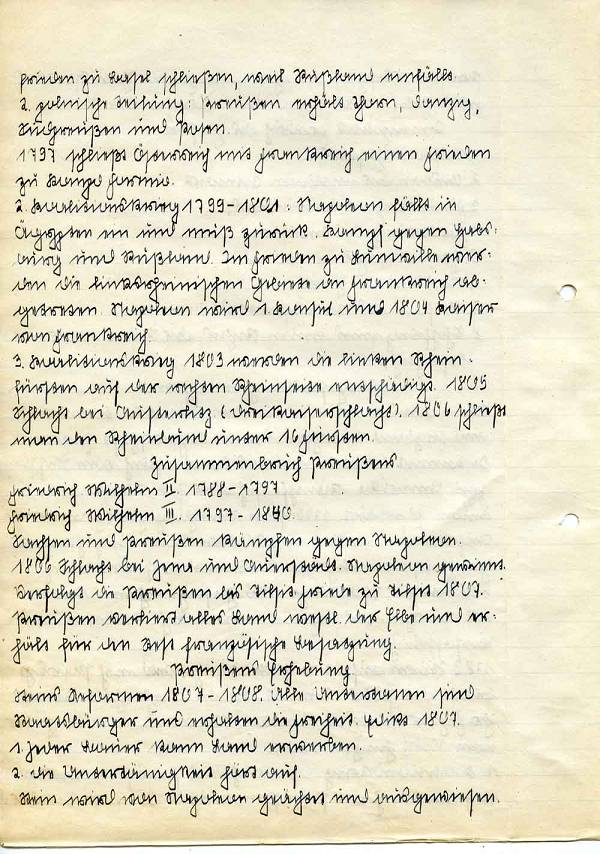 Frieden zu Basel schließen, weil Rußland einfällt.
2. polnische Teilung: Preußen erhält Thorn, Danzig,
Südpreußen und Posen.
1797 schließt Österreich mit Frankreich einen Frieden
zu Kampo Formio.
2. Koalitionskrieg 1799-1801: Napoleon fällt in
Ägypten ein und muß zurück. Kampf gegen Habs-
burg und Rußland. Im Frieden zu Lunville wer-
den die linksrheinischen Gebiete an Frankreich ab-
getreten. Napoleon wird 1. Konsul und 1804 Kaiser
von Frankreich.
3. Koalitionskrieg 1803 werden die linken Rhein-
fürsten auf der rechten Rheinseite entschädigt. 1805
Schlacht bei Austerlitz (Dreikaiserschlacht). 1806 schließt
man den Rheinbund unter 16 Fürsten.
Zusammenbruch Preußens
Friedrich Wilhelm II. 1788-1797
Friedrich Wilhelm III. 1797-1840.
Sachsen und Preußen kämpfen gegen Napoleon.
1806 Schlacht bei Jena und Auerstädt. Napoleon gewinnt.
Verfolgt die Preußen bis Tilsit Friede zu Tilsit 1807.
Preußen verliert alles Land westl. der Elbe und er-
hält für den Rest französische Besatzung.
Preußens Erhebung
Steins Reformen 1807-1808. Alle Untertanen sind
Staatsbürger und erhalten die Freiheit. Edikt 1807.
1. Jeder Bauer kann Land erwerben.
2. die Untertänigkeit hört auf.
Stein wird von Napoleon geächtet und ausgewiesen.